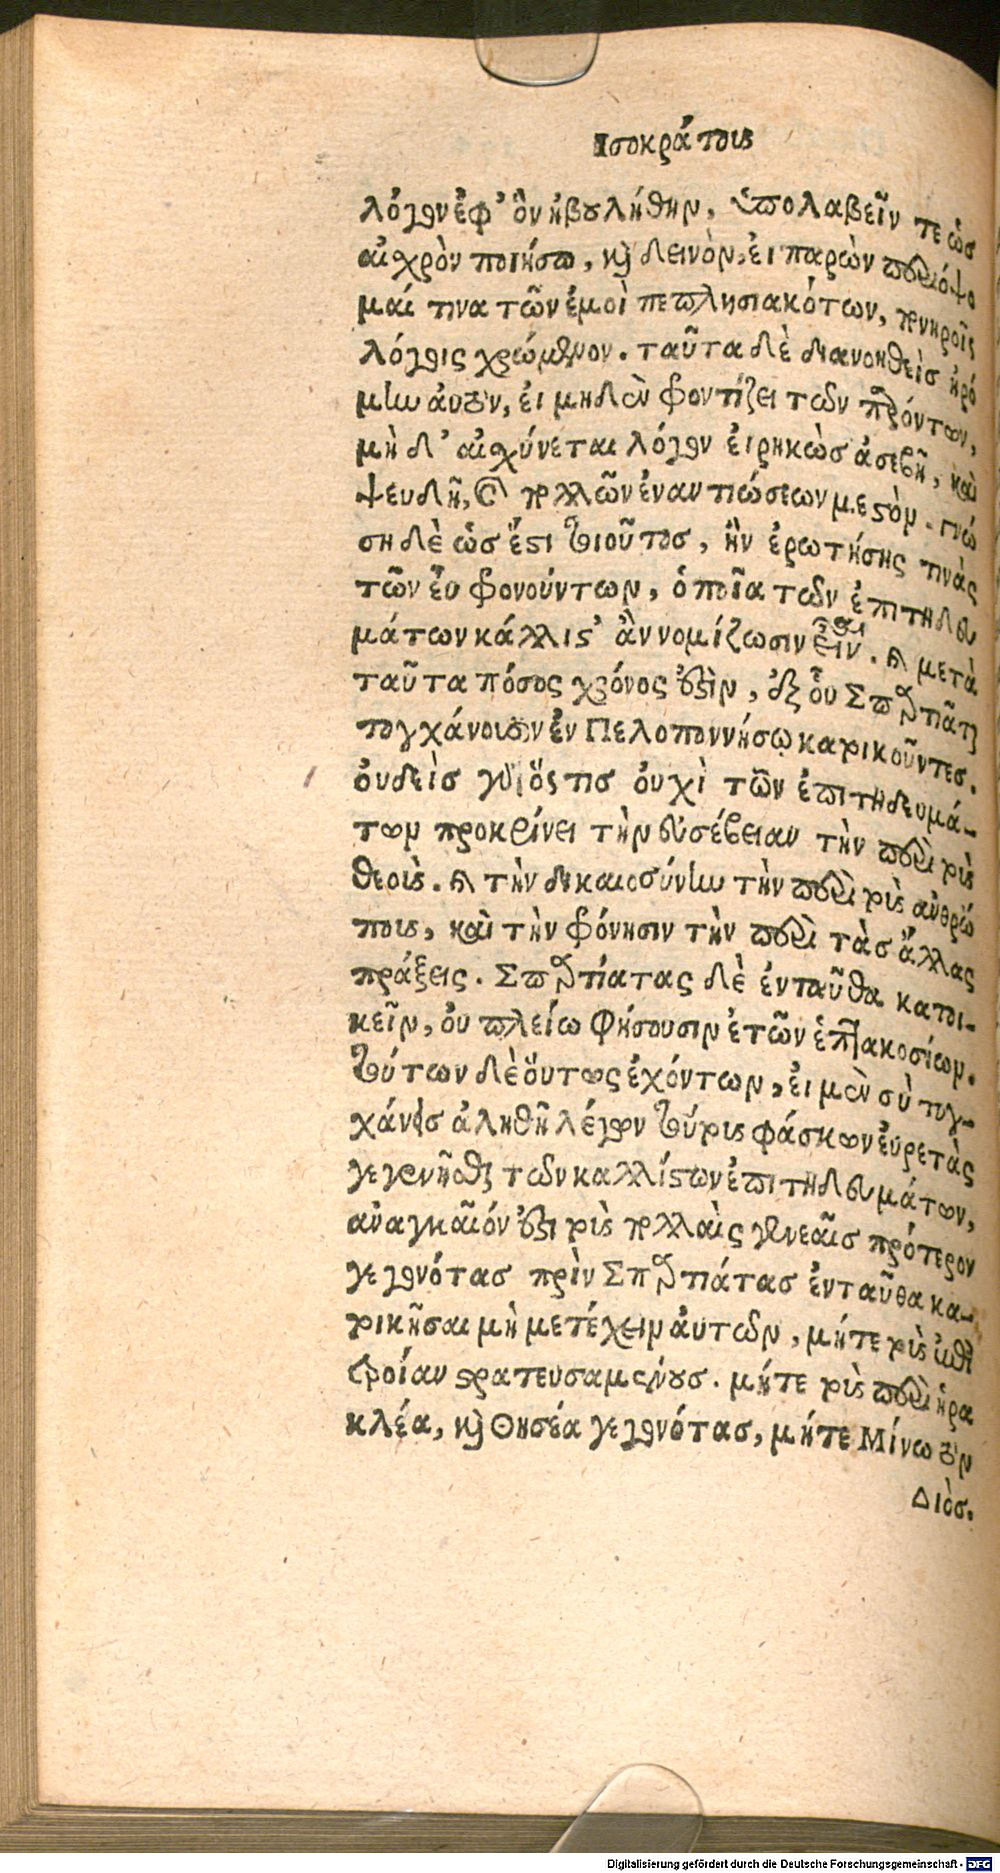 Ισοκράτους
λόγον ἐφ' ὃν ἠβουλήθην, ὑπολαβεῖν τε ὡς
αἰσχρὸν ποιήσω, καὶ δεινὸν, ἐι παρὼν περιόψο
μαί τινα τῶν ἐμοὶ πεπλησιακότων, πονηροῖς
λόγοις χρώμενον. ταῦτα δὲ διανοηθεὶς ἠρό
μην ἀυτὸν, ἐι μηδὲν φροντίζει τῶν παρόντων,
μὴ δ' αἰσχύνεται λόγον ἐιρηκὼς ἀσεβῆ, καὶ
ψευδῆ, καὶ πολλῶν ἐναντιώσεων μεστὸν. γνώ
ση δὲ ὡς ἔστι τοιοῦτος, ἢν ἐρωτήσης τινὰς
τῶν ἐυ φρονούντων, ὁποῖα τῶν ἐπιτηδευ
μάτων κάλλιστ' ἂν νομίζωσιν εἶναι. καὶ μετὰ
ταῦτα πόσος χρόνος ἐστὶν, ἐξ ὅυ Σπαρτιᾶται
τυγχάνουσιν ἐν Πελοποννήσῳ κατοικοῦντες.
ὀυδεὶς γὰρ ὅστις ὀυχὶ τῶν ἐπιτηδευμά-
των προκρίνει τὴν εὐσέβειαν τὴν περὶ τοὺς
θεοὺς. καὶ τὴν δικαιοσύνην τὴν περὶ τοὺς ἀνθρώ
πους, καὶ τὴν φρόνησιν τὴν περὶ τὰς ἄλλας
πράξεις. Σπαρτιάτας δὲ ἐνταῦθα κατοι-
κεῖν, ὀυ πλείω φήσουσιν ἐτῶν ἑπτακοσίων.
τούτων δὲ ὅυτως ἐχόντων, ἐι μὲν σὺ τυγ-
χάνεις ἀληθῆ λέγων τούτους φάσκων ἑυρετὰς
γεγενῆσθαι τῶν καλλίστων ἐπιτηδευμάτων,
ἀναγκαῖόν ἐστι τοὺς πολλαῖς γενεαῖς πρότερον
γεγονότας πρὶν Σπαρτιάτας ἐνταῦθα κα-
τοικῆσαι μὴ μετέχειν ἀυτῶν, μήτε τοὺς ἐπὶ
τροίαν στρατευσαμένους. μήτε τοὺς περὶ ἡρα
κλέα, καὶ Θησέα γεγονότας, μήτε Μίνω τὸν
Διὸς.
Digitalisierung gefördert durch die Deutsche Forschungsgemeinschaft - DFG